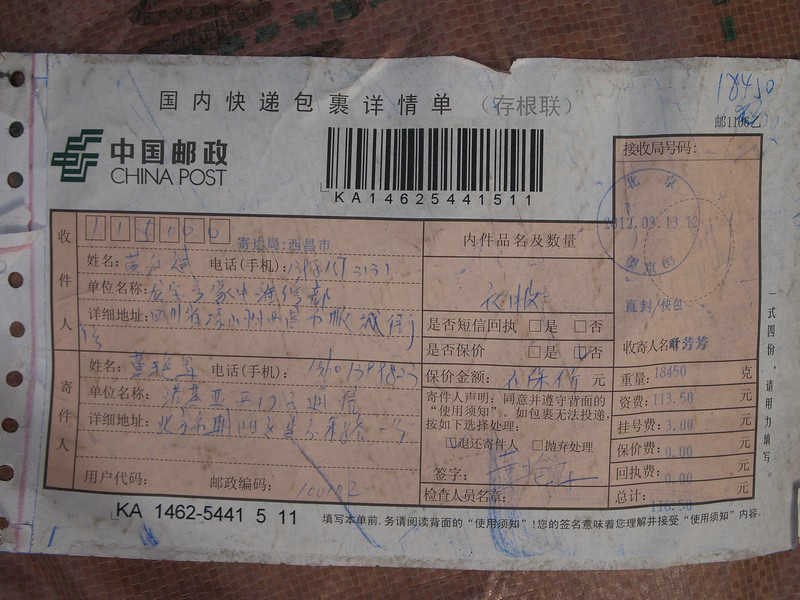 18450
国内快递包裹详情单 (存根联)
邮1106乙
中国邮政
CHINA POST
KA14625441511
接收局号码:
北京
2012.03.13 12
收件人
寄达局:西昌市
姓名: 电话(手机):
单位名称:
详细地址:四川省凉山州西昌市
内件品名及数量
衣服
是否短信回执 □是 □否
是否保价 □是 □否
保价金额: 不保价 元
直封/快包
收寄人名章 芳芳
重量: 18450 克
资费: 113.50 元
挂号费: 3.00 元
保价费: 0.00 元
回执费: 0.00 元
总计: 116.50 元
寄件人
姓名: 电话(手机):
单位名称:
详细地址:北京市朝阳区
用户代码: 邮政编码:
寄件人声明: 同意并遵守背面的
“使用须知”。如包裹无法投递,
按如下选择处理:
□退还寄件人 □抛弃处理
签字:
检查人员名章:
一式四份,请用力填写。
KA 1462-5441 5 11
填写本单前,务请阅读背面的“使用须知”!您的签名意味着您理解并接受“使用须知”内容.